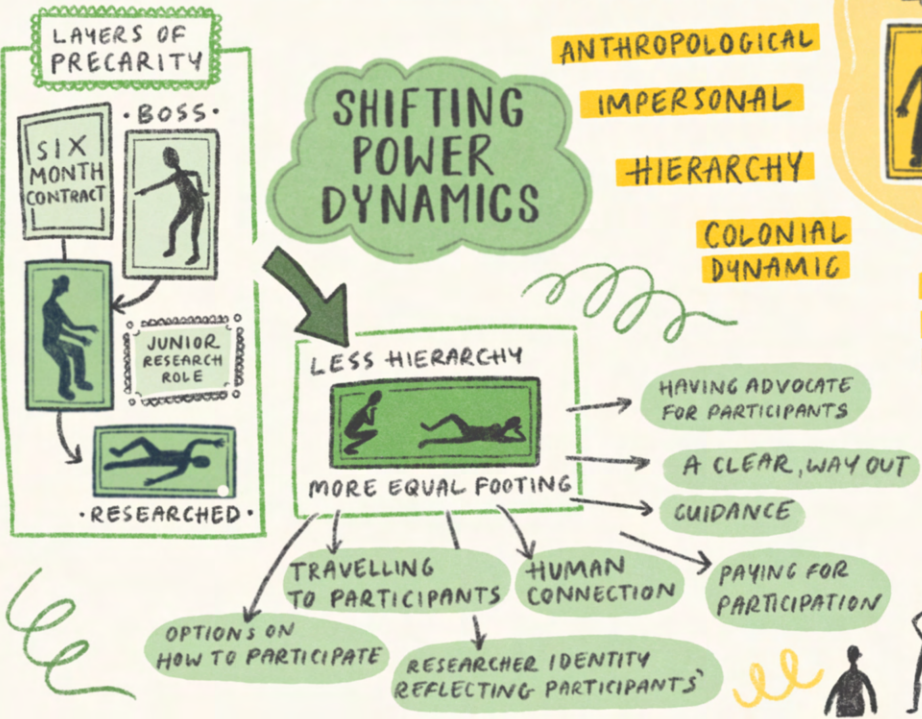 LAYERS OF
PRECARITY
SIX
MONTH
CONTRACT
• BOSS •
JUNIOR
RESEARCH
ROLE
• RESEARCHED •
SHIFTING
POWER
DYNAMICS
ANTHROPOLOGICAL
IMPERSONAL
HIERARCHY
COLONIAL
DYNAMIC
LESS HIERARCHY
MORE EQUAL FOOTING
HAVING ADVOCATE
FOR PARTICIPANTS
A CLEAR, WAY OUT
GUIDANCE
PAYING FOR
PARTICIPATION
HUMAN
CONNECTION
TRAVELLING
TO PARTICIPANTS
OPTIONS ON
HOW TO PARTICIPATE
RESEARCHER IDENTITY
REFLECTING PARTICIPANTS'